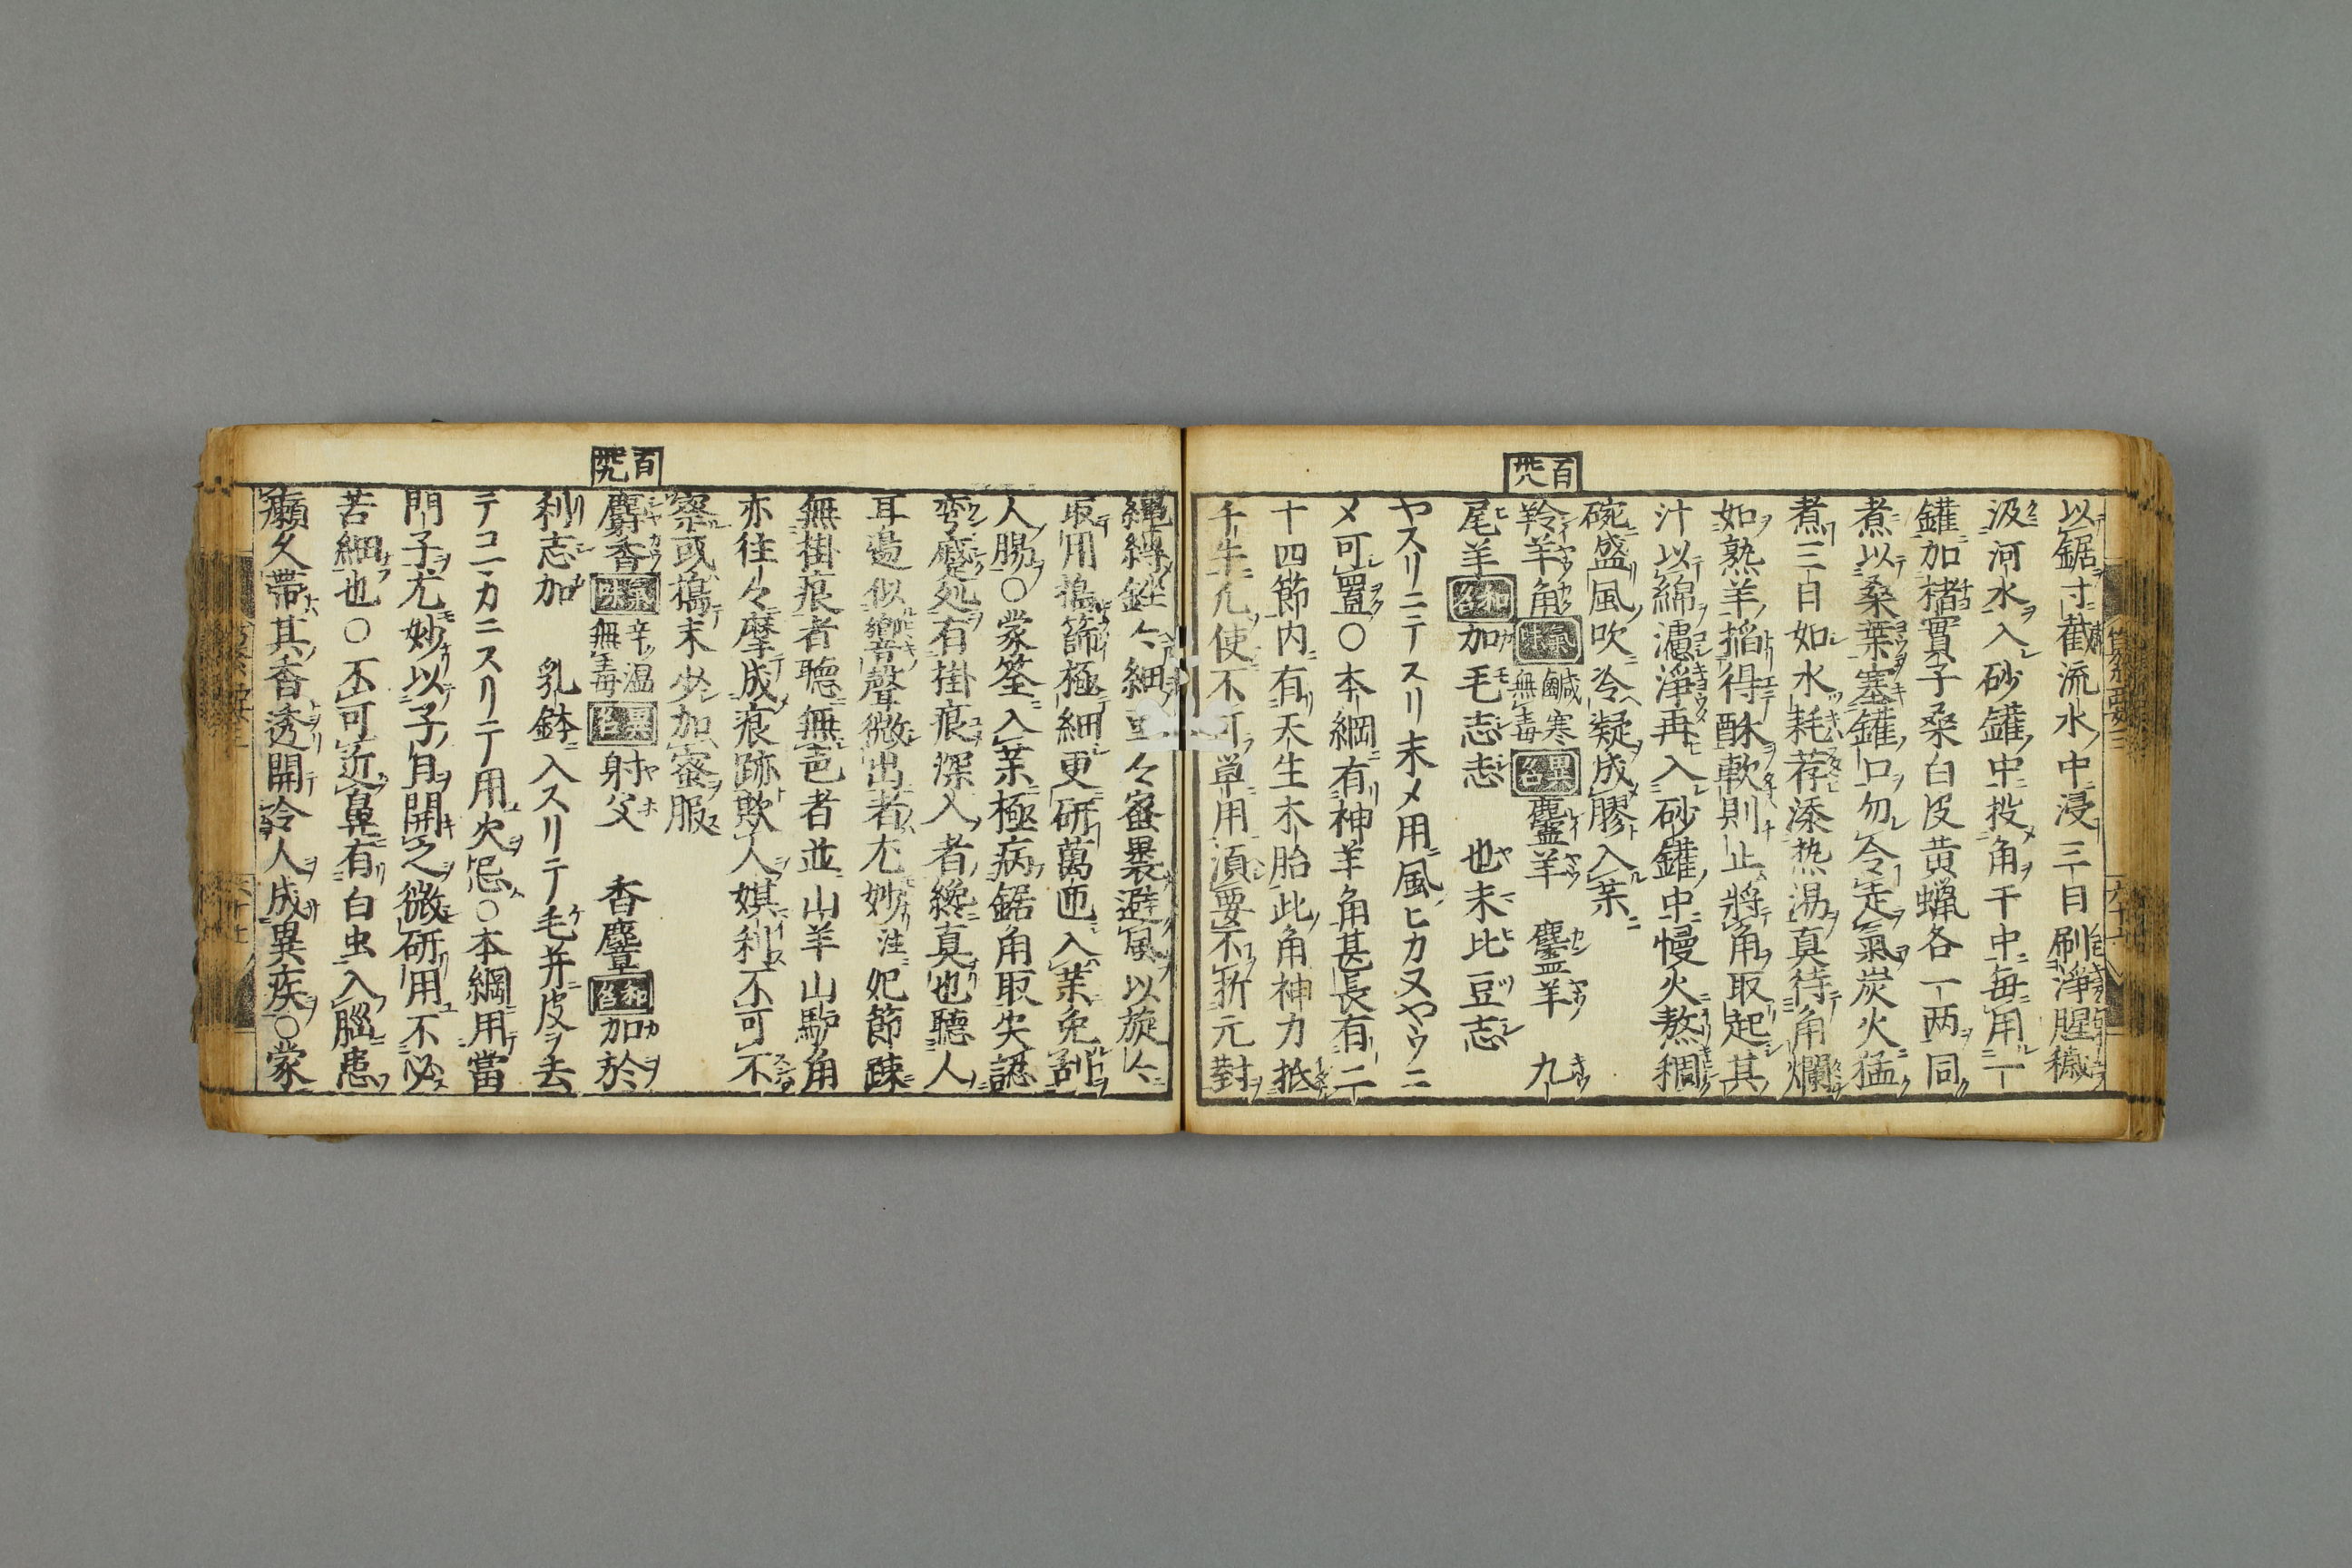 百
以鋸寸截流水中浸三日刷淨腥穢
汲河水入砂罐中投角于中毎用一
罐加楮實子桑白皮黄蝋各一两同
煮以桑葉塞罐口勿令走氣炭火猛
煮三日如水耗荐添热湯真待角爛
如熟羊掐得酥軟則止將角取起其
汁以綿濾淨再入砂罐中慢火熬稠
碗盛風吹冷凝成膠入茉
羚羊角 氣味 鹹寒無毒 異名 麢羊 麢羊 九
尾羊 和名 加毛志志 也末比豆志
ヤスリニテスリ末メ用風ヒカ又ヤウニ
メ可置〇本綱有神羊角甚長有二
十四節内有天生木胎此角神力抵
千牛凢使不可単用湏要不折元對
繩縛銼々細重々宻裹避風以旋々
取用搗篩極細更研萬匝入茉免刮
人腸〇蒙筌入茉極病鋸角取尖認
弯蹙処有掛痕深入者纔真也聽人
耳邉似響聲微出者尤妙注妃節踈
無掛痕者聴無音者並山羊山驢角
亦往々摩成痕跡欺人媒利不可不
察或搗末少加宻服
百
麝香 氣味 辛温無毒 異名 射父 香麞 和名 加於
利志加 乳鉢入スリテ毛并皮ヲ去
テコニカニスリテ用火忌〇本綱用當
門子尤妙以子日開之微研用不必
苦細也〇不可近鼻有白虫入腦患
癩久帶其香透關令人成異疾〇蒙